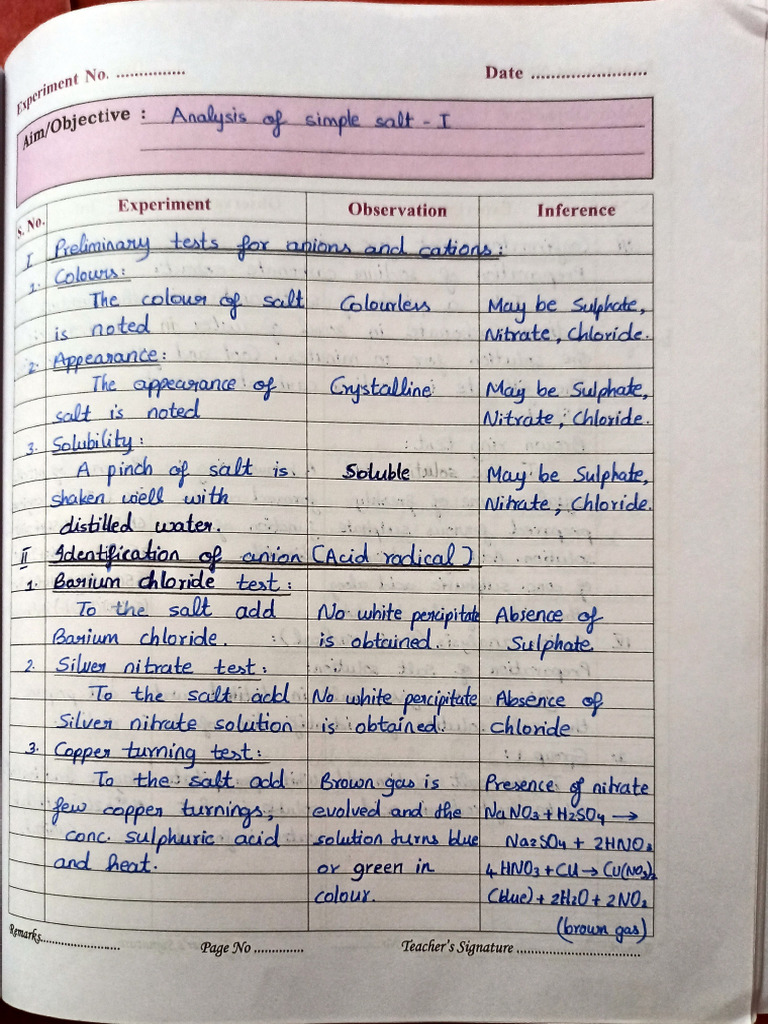 Experiment No. ............... Date .......................
Aim/Objective : Analysis of simple salt - I
S. No. Experiment Observation Inference
I Preliminary tests for anions and cations:
1. Colours:
The colour of salt Colourless May be Sulphate,
is noted Nitrate, Chloride.
2. Appearance:
The appearance of Crystalline May be Sulphate,
salt is noted Nitrate, Chloride.
3. Solubility:
A pinch of salt is Soluble May be Sulphate,
shaken well with Nitrate, Chloride.
distilled water.
II Identification of anion (Acid radical)
1. Barium chloride test:
To the salt add No white percipitate Absence of
Barium chloride. is obtained. Sulphate.
2. Silver nitrate test:
To the salt add No white percipitate Absence of
Silver nitrate solution is obtained. Chloride
3. Copper turning test:
To the salt add Brown gas is Presence of nitrate
few copper turnings, evolved and the NaNO3 + H2SO4 →
conc. sulphuric acid solution turns blue Na2SO4 + 2HNO3
and heat. or green in 4HNO3 + CU → CU(NO3)2
colour. (blue) + 2H2O + 2NO2
(brown gas)
Remarks........................ Page No ............. Teacher's Signature ..................................